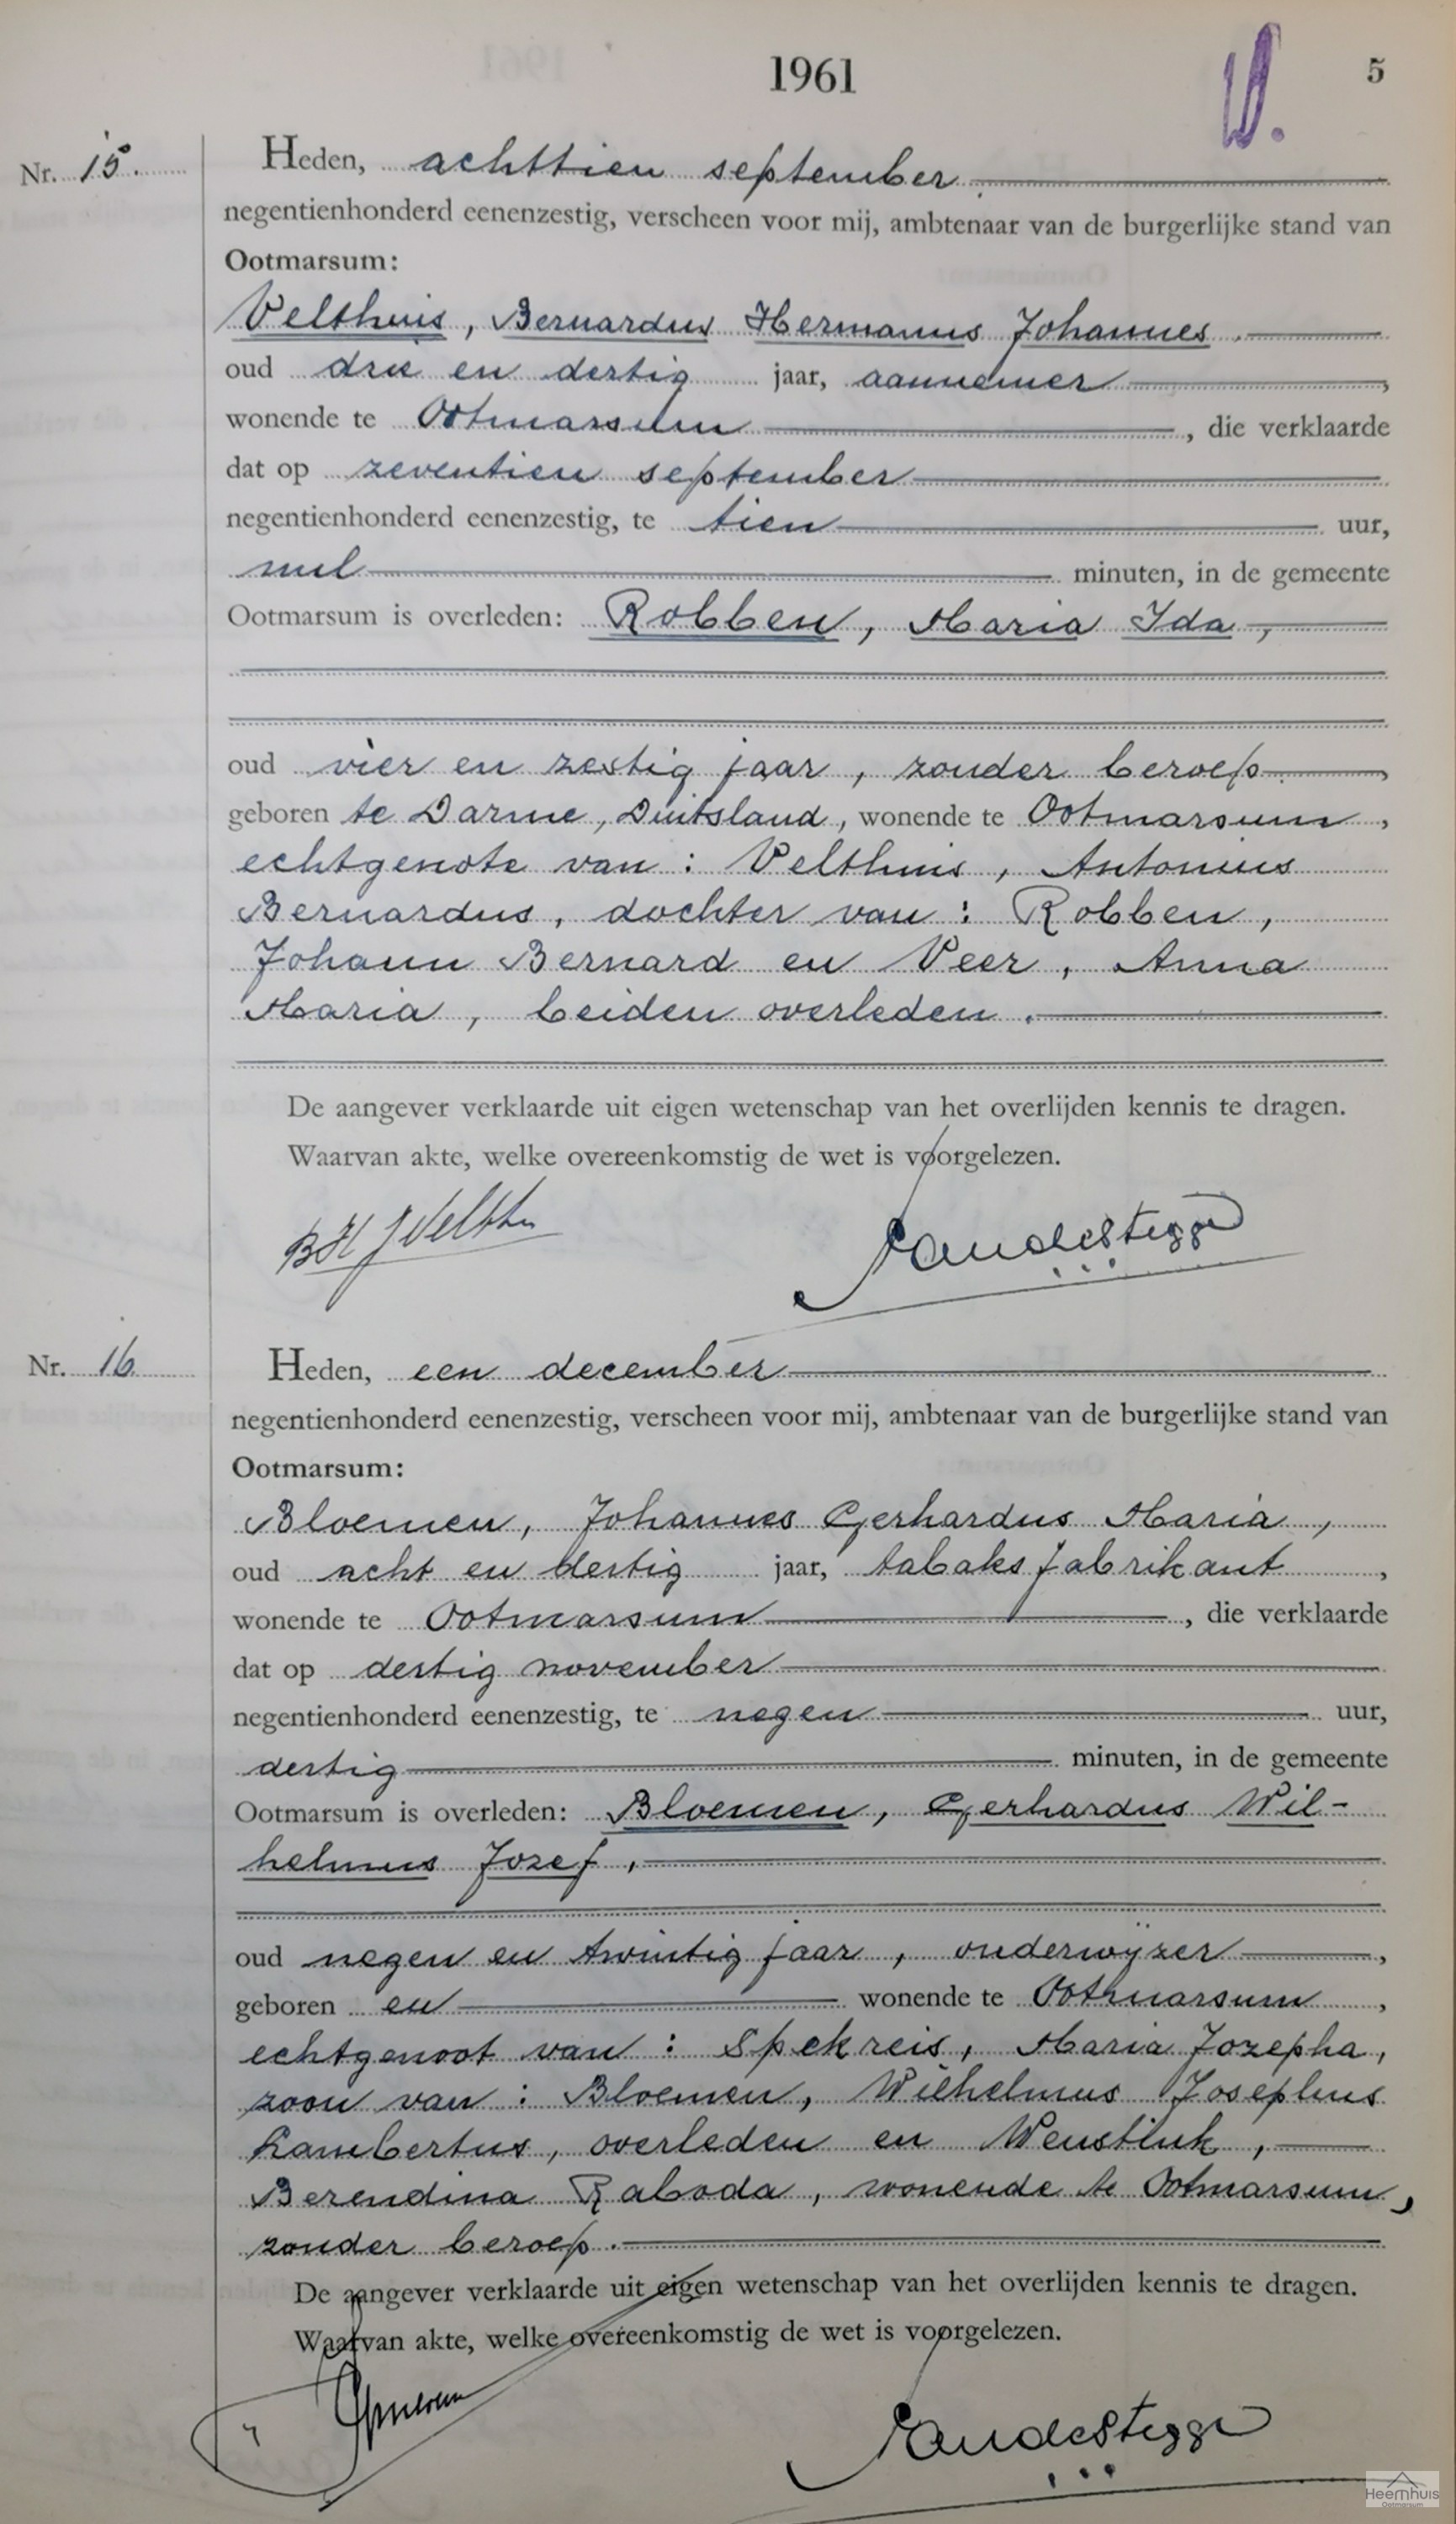 1961
5
Nr. 15.
Heden, achttien september
negentienhonderd eenenzestig, verscheen voor mij, ambtenaar van de burgerlijke stand van
Ootmarsum:
Velthuis, Bernardus Hermanus Johannes.
oud drie en dertig jaar, aannemer,
wonende te Ootmarsum, die verklaarde
dat op zeventien september
negentienhonderd eenenzestig, te tien uur,
nul minuten, in de gemeente
Ootmarsum is overleden: Robben, Maria Ida,
oud vier en zestig jaar, zonder beroep,
geboren te Darme, Duitsland, wonende te Ootmarsum,
echtgenote van: Velthuis, Antonius
Bernardus, dochter van: Robben,
Johann Bernard en Veer, Anna
Maria, beiden overleden.
De aangever verklaarde uit eigen wetenschap van het overlijden kennis te dragen.
Waarvan akte, welke overeenkomstig de wet is voorgelezen.
BHJ Velthu
Nr. 16
Heden, een december
negentienhonderd eenenzestig, verscheen voor mij, ambtenaar van de burgerlijke stand van
Ootmarsum:
Bloemen, Johannes Gerhardus Maria,
oud acht en dertig jaar, tabaksfabrikant,
wonende te Ootmarsum, die verklaarde
dat op dertig november
negentienhonderd eenenzestig, te negen uur,
dertig minuten, in de gemeente
Ootmarsum is overleden: Bloemen, Gerhardus Wil-
helmus Jozef,
oud negen en twintig jaar, onderwijzer,
geboren en wonende te Ootmarsum,
echtgenoot van: Spekreis, Maria Jozepha,
zoon van: Bloemen, Wilhelmus Josephus
Lambertus, overleden en Wenstink,
Berendina Raboda, wonende te Ootmarsum,
zonder beroep.
De aangever verklaarde uit eigen wetenschap van het overlijden kennis te dragen.
Waarvan akte, welke overeenkomstig de wet is voorgelezen.
Heemhuis
Ootmarsum